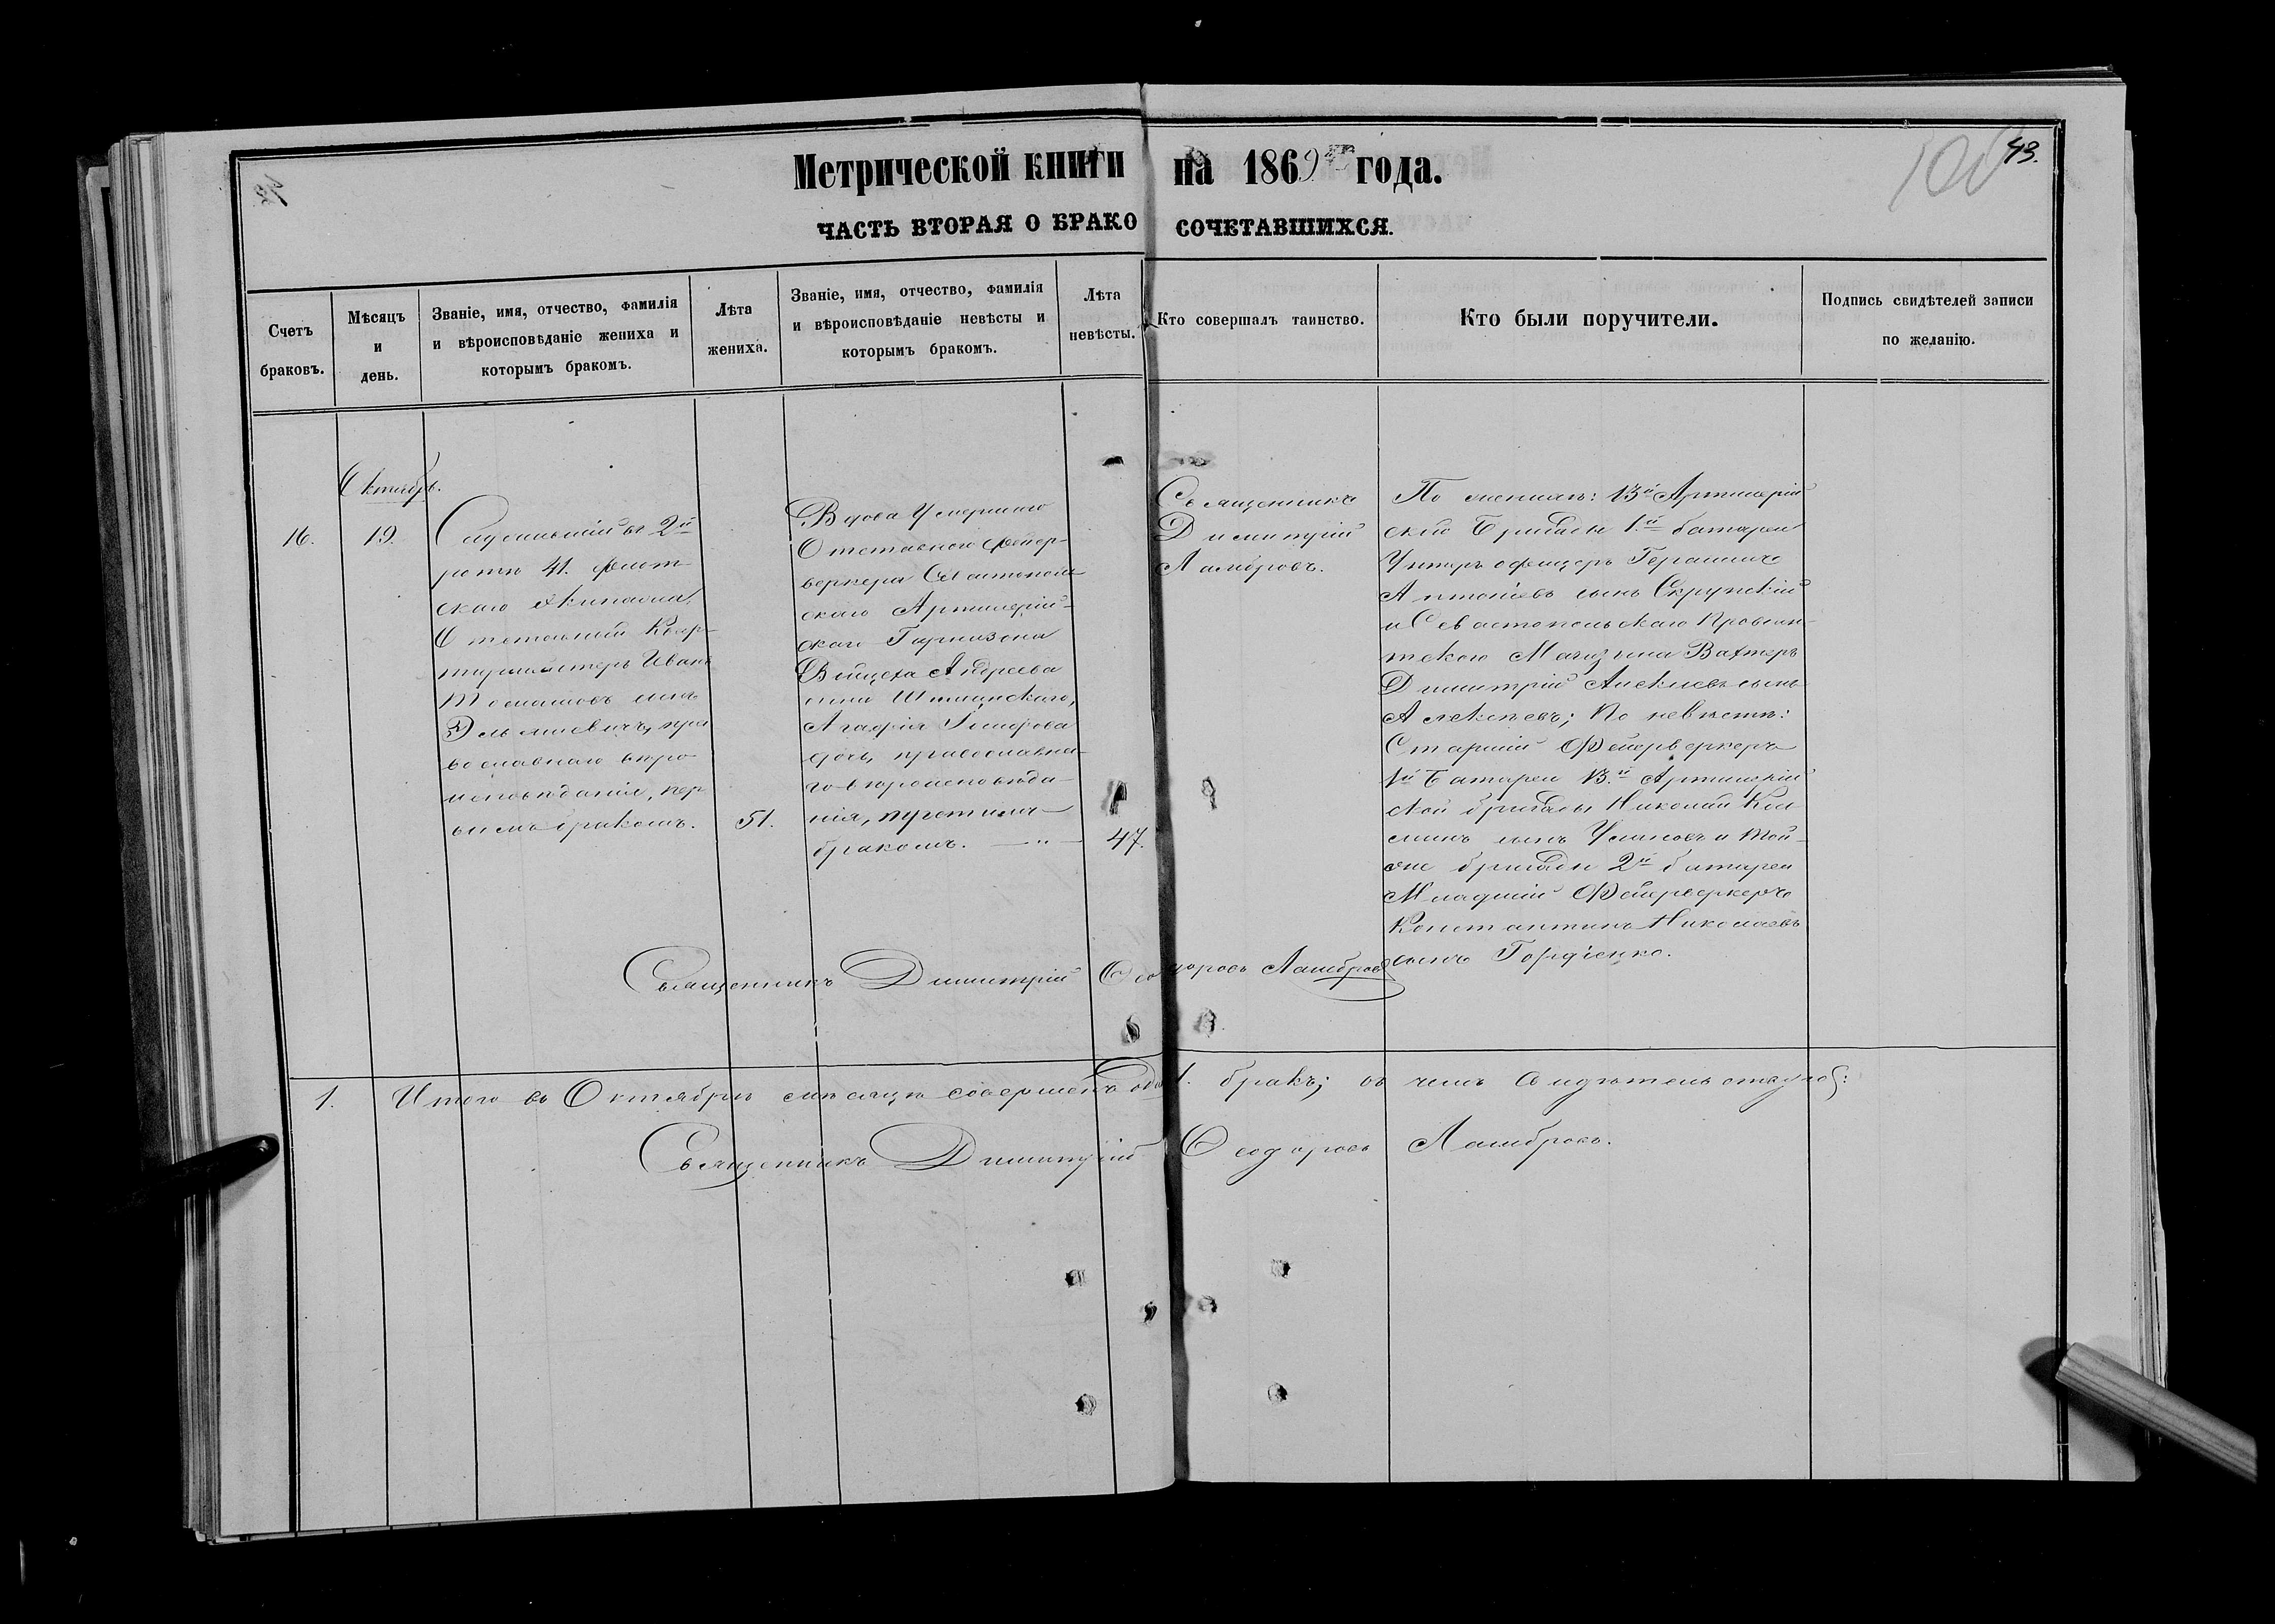 Метрической книги на 1869го года.
43.
100
ЧАСТЬ ВТОРАЯ О БРАКОСОЧЕТАВШИХСЯ.
Счетъ браковъ.
Мѣсяцъ и день.
Званіе, имя, отчество, фамилія и вѣроисповѣданіе жениха и которымъ бракомъ.
Лѣта жениха.
Званіе, имя, отчество, фамилія и вѣроисповѣданіе невѣсты и которымъ бракомъ.
Лѣта невѣсты.
Кто совершалъ таинство.
Кто были поручители.
Подпись свидѣтелей записи по желанію.
16.
Октябрь.
19.
въ 2й
ротѣ 41. флот-
скаго Экипажа,
Отставный Квар-
тирмистеръ Иванъ
сынъ
пра
вославнаго вѣро
исповѣданія, пер
вымъ бракомъ.
51.
Вдова Умершаго
Отставного фейер-
веркера Севастополь
скаго Артилерій-
скаго Гарнизона
Войцеха Андреева
сына
Агафія
дочь, православна-
го вѣроисповѣда-
нія,
бракомъ.
47.
Священникъ
Димитрій
Ламбровъ.
По женихѣ: 13й Артилерій
ской Бригады 1й батареи
Унтеръ офицеръ Герасимъ
Антоніевъ сынъ Скрупскій
и Севастопольскаго Провіан-
тскаго Магазина Вахтеръ
Димитрій Алексіевъ сынъ
Алексѣевъ; По невѣстѣ:
Старшій Фейерверкеръ
1й Батареи 13.й Артилерій
ской бригады Николай
сынъ и той
же бригады 2й батареи
Младшій Фейерверкеръ
Константинъ Николаевъ
сынъ Гордіенко.
Священникъ Димитрій Ѳеодоровъ Ламбровъ
1. Итого въ Октябрѣ мѣсяцѣ совершенъ 1. бракъ; въ чемъ
Священникъ Димитрій Ѳеодоровъ Ламбровъ.